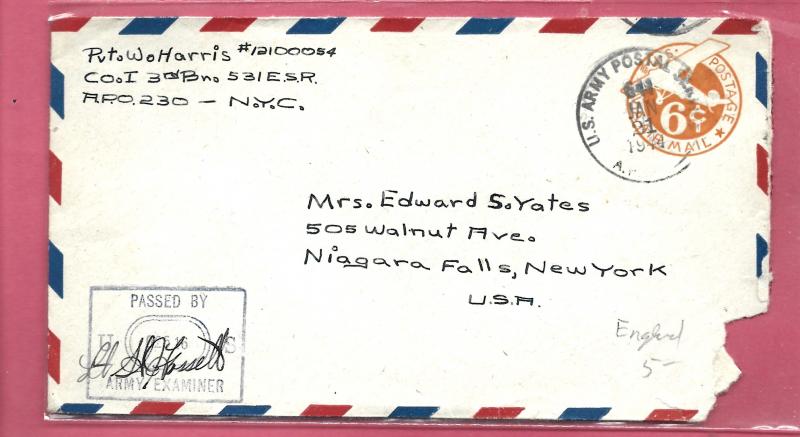 Pvt. W. Harris #12100054
CO. I 3rd Bn. 531 E.S.R.
A.P.O. 230 — N.Y.C.
U.S. ARMY POSTAL
JAN
A.P.
U.S. POSTAGE
6¢
AIR MAIL
Mrs. Edward S. Yates
505 Walnut Ave.
Niagara Falls, New York
U.S.A.
PASSED BY
U S
Lt
ARMY EXAMINER
England
5-